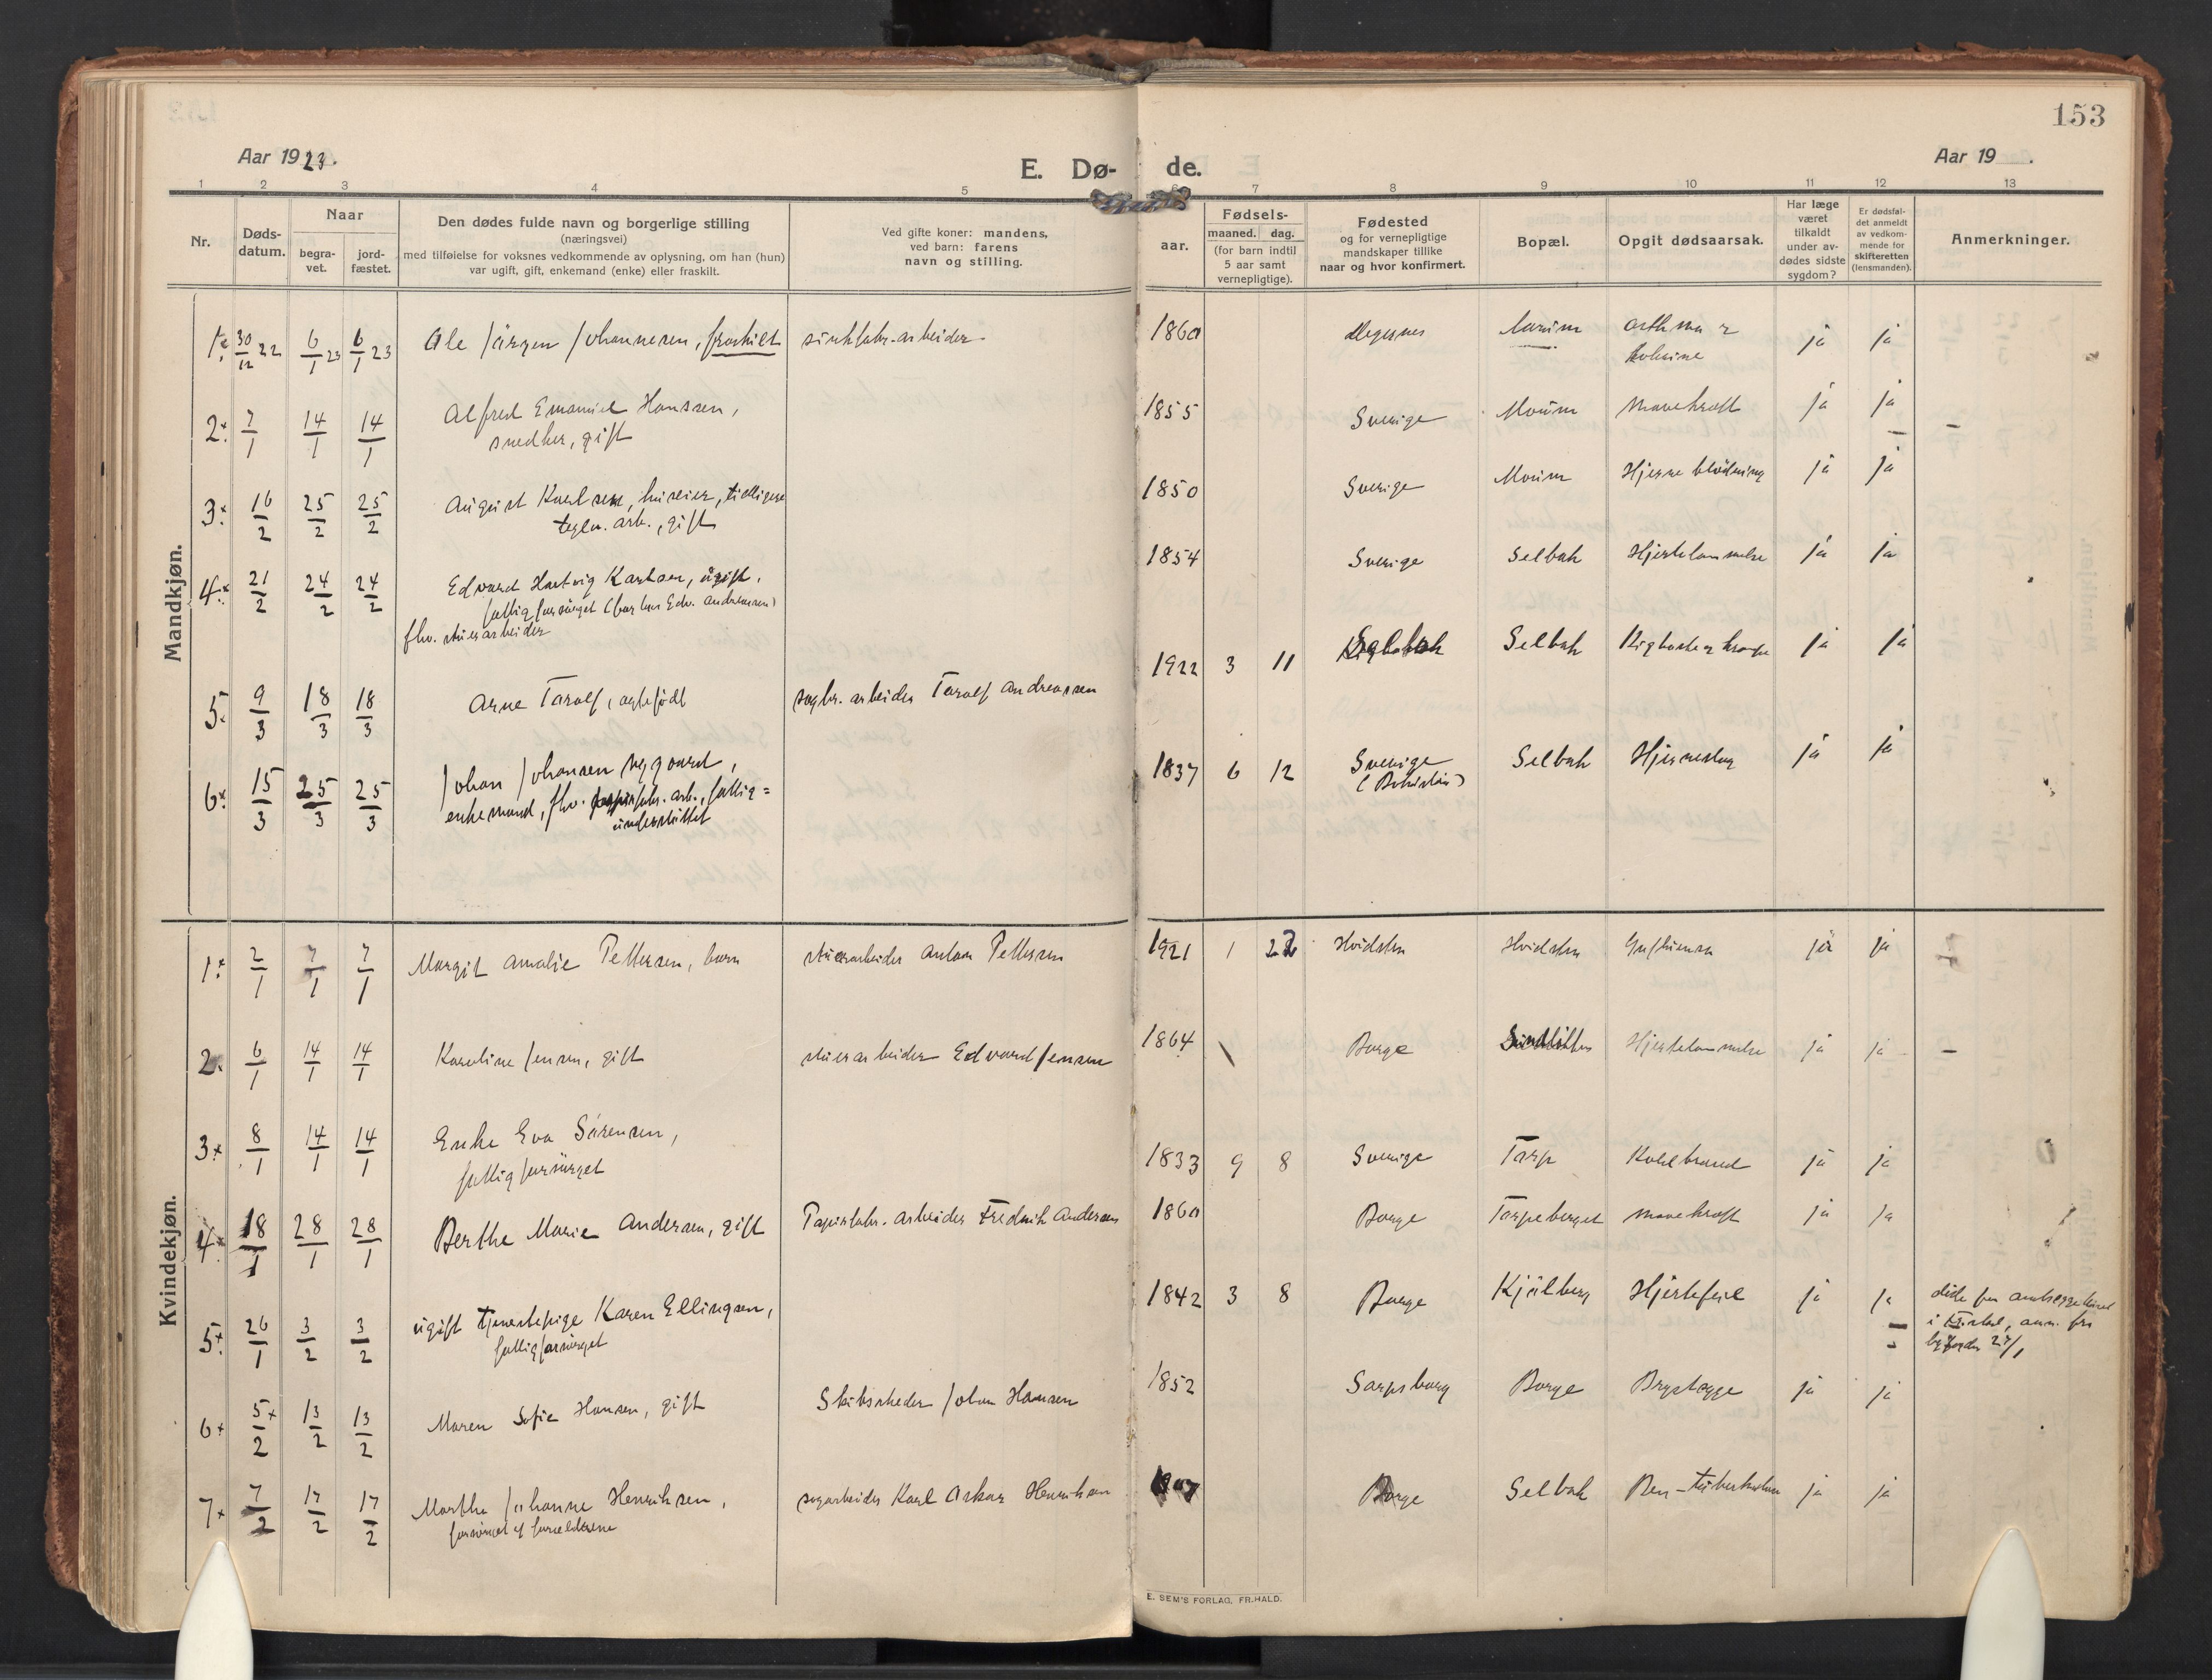 153
Aar 1923.
E. Dø- de.
Aar 19 .
1 2 3 4 5 6 7 8 9 10 11 12 13
Nr.
Døds-
datum.
Naar
begra-
vet.
jord-
fæstet.
Den dødes fulde navn og borgerlige stilling
(næringsvei)
med tilføielse for voksnes vedkommende av oplysning, om han (hun)
var ugift, gift, enkemand (enke) eller fraskilt.
Ved gifte koner: mandens,
ved barn: farens
navn og stilling.
aar.
Fødsels-
maaned. dag.
(for barn indtil
5 aar samt
vernepligtige).
Fødested
og for vernepligtige
mandskaper tillike
naar og hvor konfirmert.
Bopæl.
Opgit dødsaarsak.
Har læge
været
tilkaldt
under av-
dødes sidste
sygdom?
Er dødsfal-
det anmeldt
av vedkom-
mende for
skifteretten
(lensmanden).
Anmerkninger.
Mandkjøn.
1 30/12 22 6/1 23 6/1 23 Ole Jörgen Johannesen, fraskilt 1860 ja ja
2 7/1 14/1 14/1 Alfred Emanuel Hanssen, 1855 Sverige Moum mavekræft ja ja
snedker, gift
3 16/2 25/2 25/2 August Karlsen, huseier, tidligere 1850 Sverige Moum Hjerneblödning ja ja
teglv. arb., gift
4 21/2 24/2 24/2 Edvard Hartvig Karlsen, ugift, 1854 Sverige Selbak Hjertelammelse ja ja
fattigforsörget
fhv. stuerarbeider
5 9/3 18/3 18/3 Arne Toralf, egtefødt sagbr. arbeider Toralf Andreassen 1922 3 11 Selbak Kighoste og krampe ja ja
6 15/3 25/3 25/3 Johan Johansen Nygaard, 1837 6 12 Sverige Selbak Hjerneslag ja ja
enkemand, fhv. papirfabr. arb., fattig=
understöttet
Kvindekjøn.
1 2/1 7/1 7/1 Margit Amalie Pettersen, barn stuerarbeider Anton Pettersen 1921 1 22 Hvidsten Hvidsten ja ja
2 6/1 14/1 14/1 Karoline Jensen, gift stuerarbeider Edvard Jensen 1864 Borge Hjertelammelse ja ja –
3 8/1 14/1 14/1 Enke Eva Sörensen, 1833 9 8 Sverige Torp Koldbrand ja ja
fattigforsörget
4 18/1 28/1 28/1 Berthe Marie Andersen, gift Papirfabr. arbeider Fredrik Andersen 1860 Borge Torpeberget mavekræft ja ja
5 26/1 3/2 3/2 ugift tjenestepige Karen Ellingsen, 1842 3 8 Borge Kjölberg Hjertefeil ja ja
fattigforsörget
6 5/2 13/2 13/2 Maren Sofie Hansen, gift Skibsreder Johan Hansen 1852 Sarpsborg Borge ja ja
7 7/2 17/2 17/2 Marthe Johanne Henriksen, sagarbeider Karl Oskar Henriksen 1907 Borge Selbak Ben-tuberkulose ja ja
forsörget af forældrene
E. SEM'S FORLAG, FR.HALD.